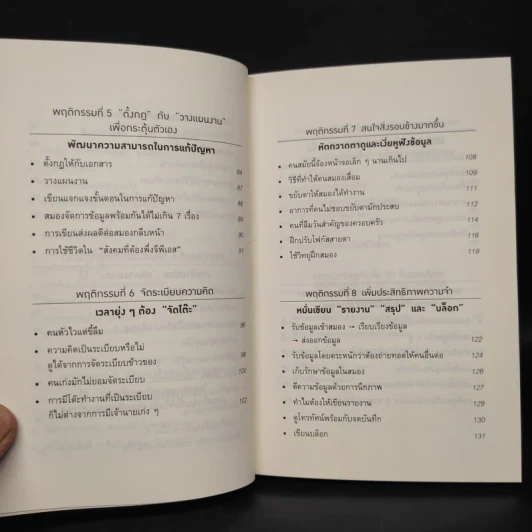 พฤติกรรมที่ 5 “ตั้งกฎ” กับ “วางแผนงาน”
เพื่อกระตุ้นตัวเอง
พัฒนาความสามารถในการแก้ปัญหา
• ตั้งกฎให้กับเอกสาร 84
• วางแผนงาน 87
• เขียนแจกแจงขั้นตอนในการแก้ปัญหา 88
• สมองจัดการข้อมูลพร้อมกันได้ไม่เกิน 7 เรื่อง 89
• การเขียนส่งผลดีต่อสมองกลีบหน้า 90
• การใช้ชีวิตใน “สังคมที่ต้องพึ่งจีพีเอส” 91
พฤติกรรมที่ 6 จัดระเบียบความคิด
เวลายุ่ง ๆ ต้อง “จัดโต๊ะ”
• คนหัวไวแต่ขี้ลืม 96
• ความคิดเป็นระเบียบหรือไม่
ดูได้จากการจัดระเบียบข้าวของ 98
• คนเก่งมักไม่ยอมจัดระเบียบ 100
• การมีโต๊ะทำงานที่เป็นระเบียบ
ก็ไม่ต่างจากการมีเจ้านายเก่ง ๆ 102
พฤติกรรมที่ 7 สนใจสิ่งรอบข้างมากขึ้น
หัดกวาดตาดูและเงี่ยหูฟังข้อมูล
• คนสมัยนี้จ้องหน้าจอเล็ก ๆ นานเกินไป 108
• วิธีที่ทำให้คนสมองเสื่อม 109
• ขยับตาให้สมองได้ทำงาน 111
• อาการที่คนไม่ชอบขยับตามักประสบ 112
• คนที่ลืมวันสำคัญของครอบครัว 114
• ฝึกปรับโฟกัสสายตา 116
• ใช้วิทยุฝึกสมอง 118
พฤติกรรมที่ 8 เพิ่มประสิทธิภาพความจำ
หมั่นเขียน “รายงาน” “สรุป” และ “บล็อก”
• รับข้อมูลเข้าสมอง → เรียบเรียงข้อมูล
→ ส่งออกข้อมูล 122
• รับข้อมูลโดยตระหนักว่าต้องถ่ายทอดให้คนอื่นต่อ 124
• เก็บรักษาข้อมูลในสมอง 126
• ตีความข้อมูลด้วยการนึกภาพ 127
• ทำไมต้องให้เขียนรายงาน 129
• ดูโทรทัศน์พร้อมกับจดบันทึก 130
• เขียนบล็อก 131